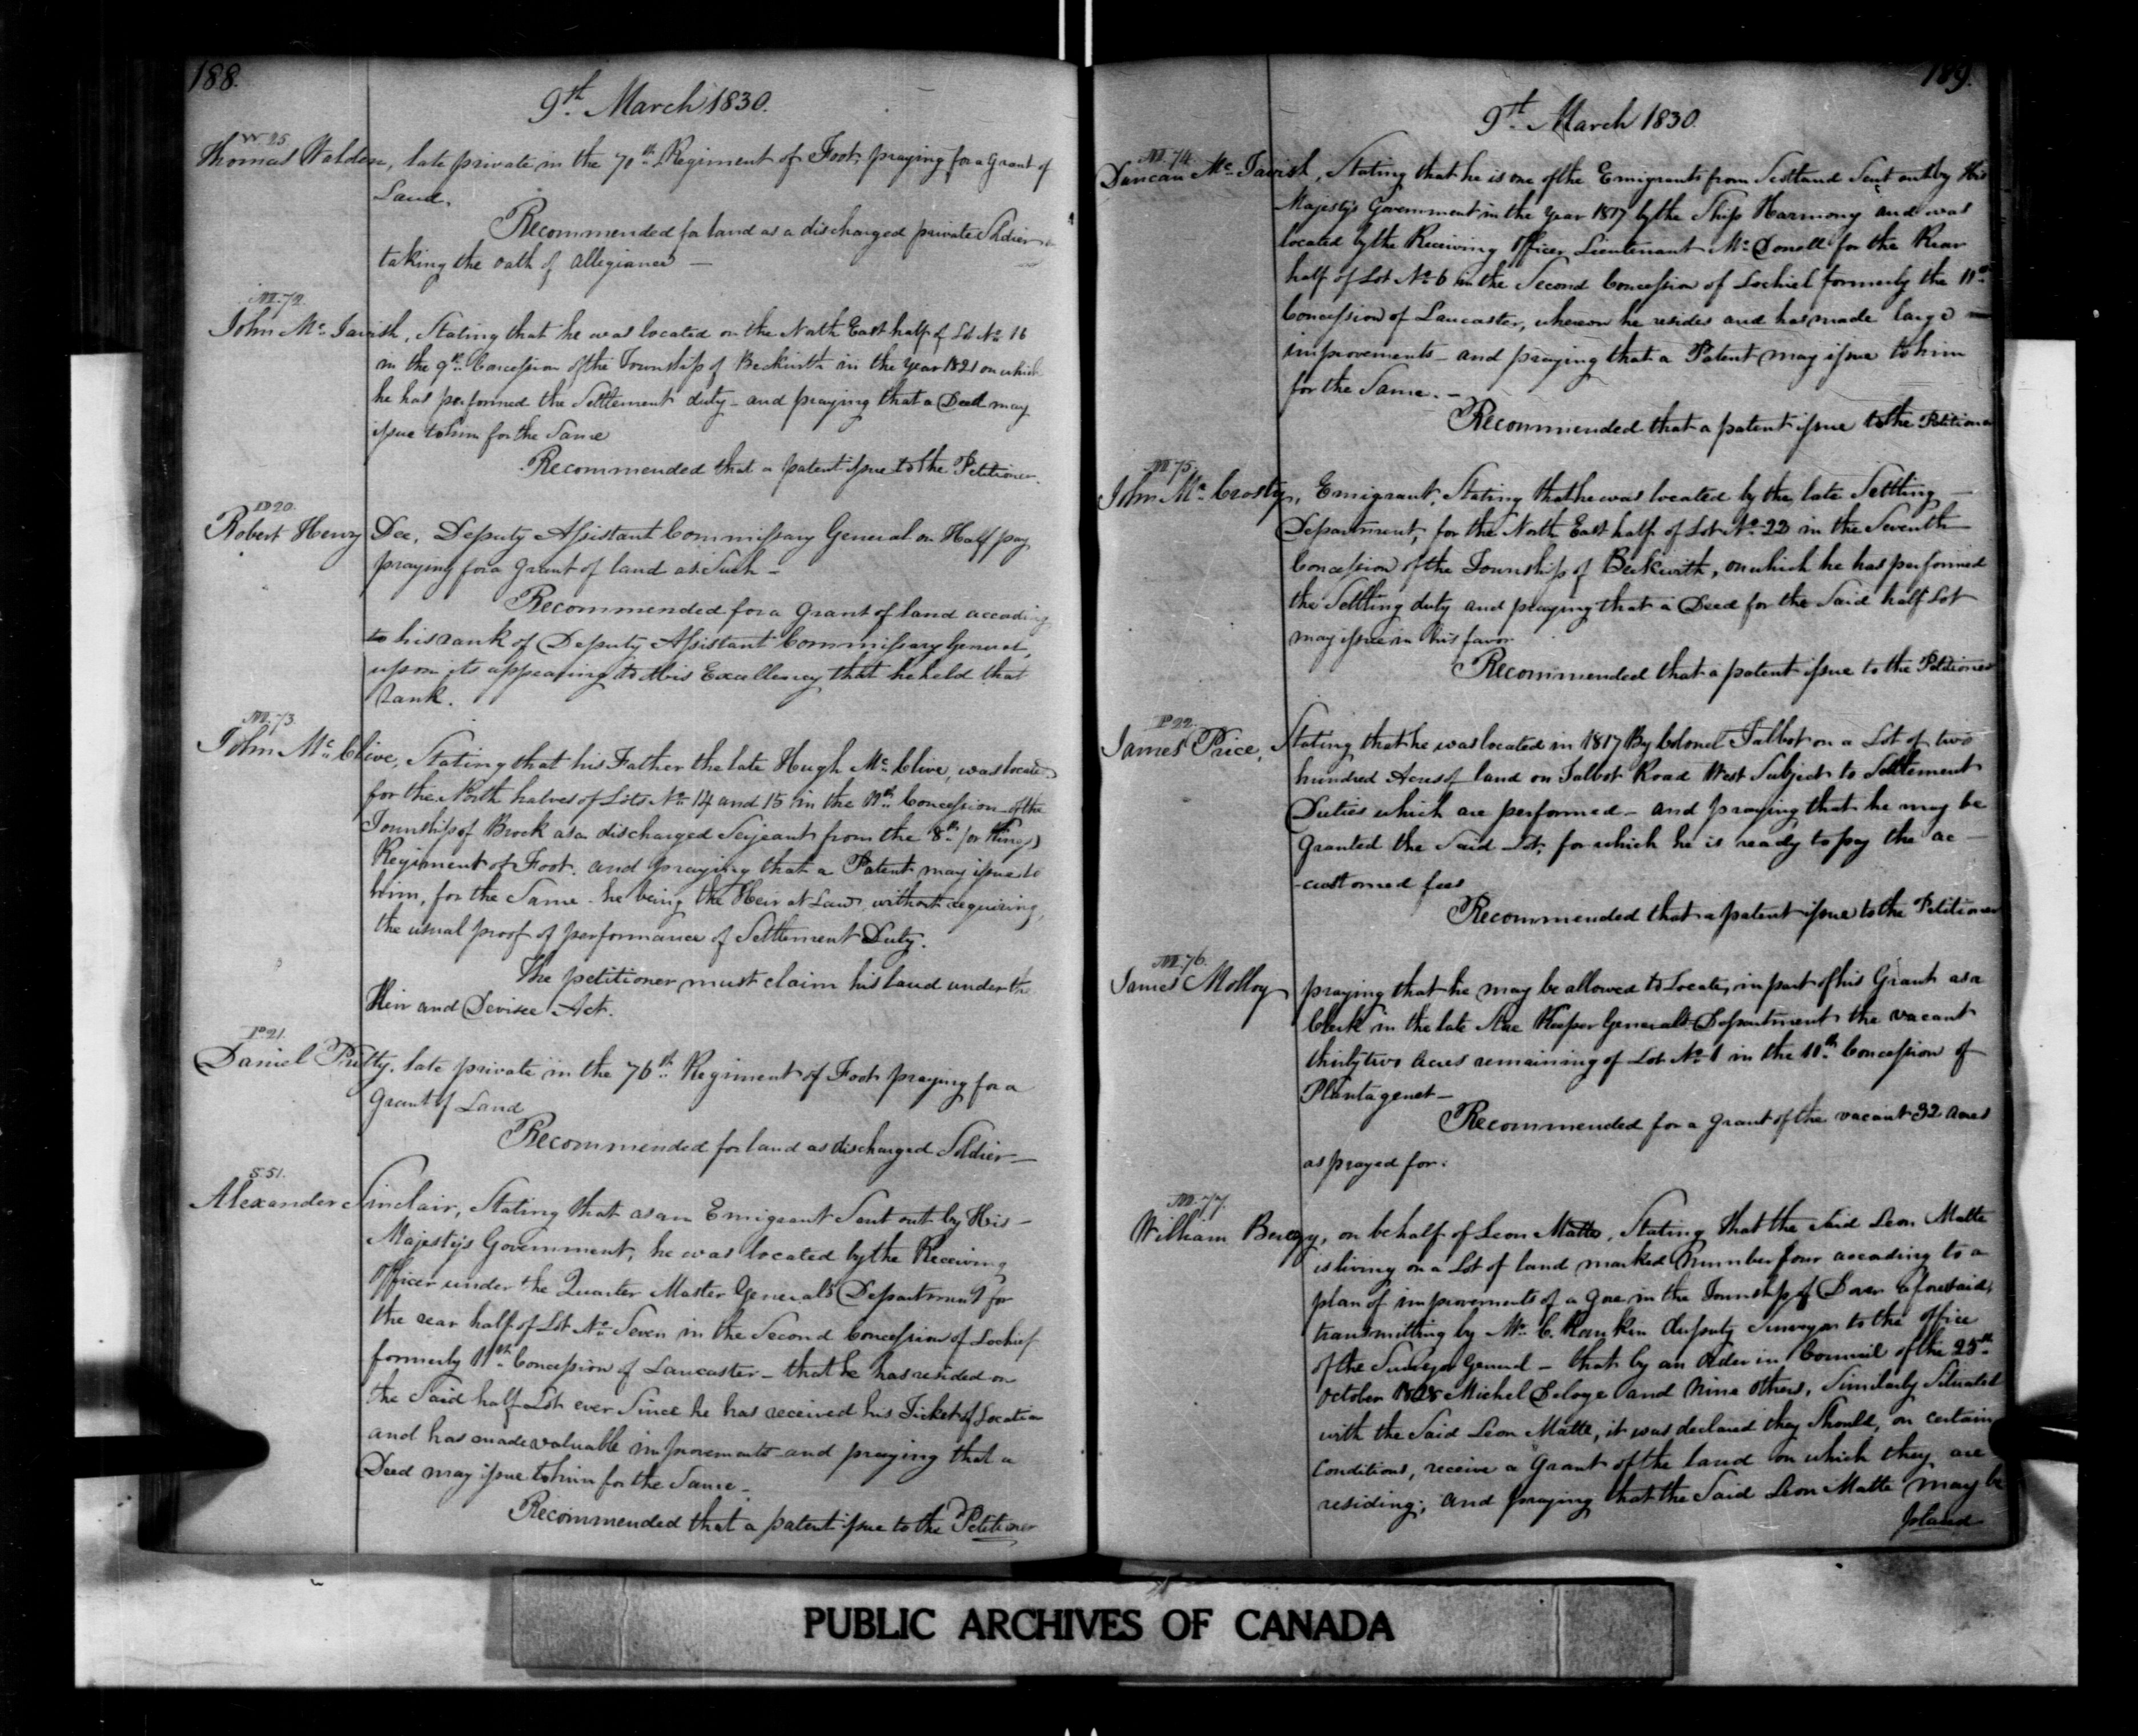 188.
9th. March 1830.
W 25
Thomas Walden, late private in the 70th Regiment of Foot, praying for a Grant of
Land.
Recommended for land as a discharged private Soldier
taking the oath of allegiance —
M. 72.
John Mc. Tavish, Stating that he was located on the North East half of Lot No. 16
in the 9th. Concession of the Township of Beckwith in the Year 1821 on which
he has performed the Settlement duty - and praying that a Deed may
issue to him for the Same
Recommended that a patent issue to the Petitioner.
D 20.
Robert Henry Dee, Deputy Assistant Commissary General on Half pay
praying for a grant of land as Such -
Recommended for a grant of land according
to his rank of Deputy Assistant Commissary General,
upon its appearing to His Excellency that he held that
rank.
M. 73.
John Mc. Clive, Stating that his Father the late Hugh Mc. Clive, was located
for the North halves of Lots No. 14 and 15 in the 11th. Concession of the
Township of Brock as a discharged Serjeant from the 8th. (or Kings)
Regiment of Foot. and praying that a Patent may issue to
him, for the Same - he being the Heir at Law, without requiring,
the usual proof of performance of Settlement Duty.
The petitioner must claim his land under the
Heir and Devisee Act.
P. 21.
Daniel Pretty, late private in the 76th. Regiment of Foot praying for a
Grant of Land
Recommended for land as discharged Soldier —
S 51.
Alexander Sinclair, Stating that as an Emigrant Sent out by His -
Majesty's Government, he was located by the Receiving
Officer under the Quarter Master General's Department for
the rear half of Lot No. Seven in the Second Concession of Lochiel
formerly 11th. Concession of Lancaster - that he has resided on
the Said half Lot ever Since he has received his Ticket of Location
and has made valuable improvements and praying that a
Deed may issue to him for the Same -
Recommended that a patent issue to the Petitioner
189.
9th. March 1830.
M. 74.
Duncan Mc. Tavish, Stating that he is one of the Emigrants from Scotland Sent out by His
Majesty's Government in the Year 1817 by the Ship Harmony and was
located by the Receiving Officer Lieutenant Mc. Donell for the Rear
half of Lot No. 6 in the Second Concession of Lochiel formerly the 11th.
Concession of Lancaster, whereon he resides and has made large
improvements - and praying that a Patent may issue to him
for the Same. -
Recommended that a patent issue to the Petitioner
M. 75.
John Mc. Crosty, Emigrant, Stating that he was located by the late Settling —
Department, for the North East half of Lot No. 23 in the Seventh
Concession of the Township of Beckwith, on which he has performed
the Settling duty and praying that a Deed for the Said half Lot
may issue in his favor
Recommended that a patent issue to the Petitioner
P 22.
James Price, Stating that he was located in 1817 By Colonel Talbot on a Lot of two
hundred Acres of land on Talbot Road West Subject to Settlement
Duties which are performed - and praying that he may be
granted the Said Lot, for which he is ready to pay the ac -
-customed fees
Recommended that a patent issue to the Petitioner
M. 76.
James Molloy praying that he may be allowed to Locate, in part of his Grant as a
Clerk in the late Store Keeper Generals Department the vacant
thirty two acres remaining of Lot No. 1 in the 11th. Concession of
Plantagenet -
Recommended for a grant of the vacant 32 acres
as prayed for.
M. 77.
William on behalf of Leon Matte, Stating that the Said Leon Matte
is living on a Lot of land marked Number four according to a
plan of improvements of a gore in the Township of Dover aforesaid,
transmitting by Mr. C. Rankin deputy Surveyor to the office
of the Surveyor General - that by an Order in Council of the 25th.
October 1828 Michel Deloge and nine others, Similarly Situated
with the Said Leon Matte, it was declared they Should, on certain
Conditions, receive a Grant of the land on which they are
residing; and praying that the Said Leon Matte may be
placed
PUBLIC ARCHIVES OF CANADA